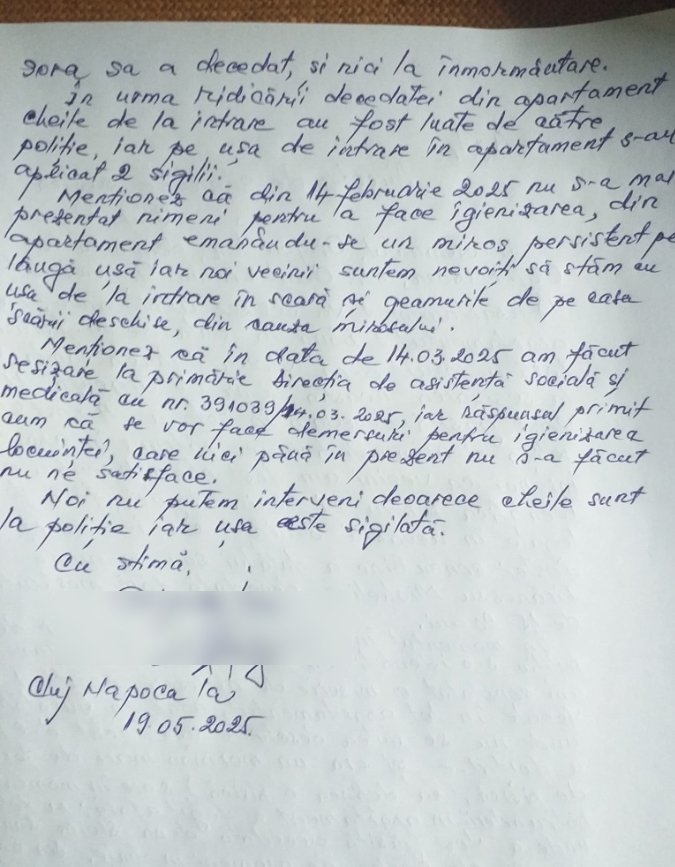 sora sa a decedat, și nici la înmormântare.
În urma ridicării decedatei din apartament
cheile de la intrare au fost luate de către
poliție, iar pe ușa de intrare în apartament s-au
aplicat 2 sigilii.
Menționez că din 14 februarie 2025 nu s-a mai
prezentat nimeni pentru a face igienizarea, din
apartament emanându-se un miros persistent pe
lângă ușă iar noi vecinii suntem nevoiți să stăm cu
ușa de la intrare în scară și geamurile de pe casa
scării deschise, din cauza mirosului.
Menționez că în data de 14.03.2025 am făcut
sesizare la primărie Direcția de asistență socială și
medicală cu nr. 391039/14.03.2025, iar răspunsul primit
cum că se vor face demersuri pentru igienizarea
locuinței, care nici până în prezent nu s-a făcut
nu ne satisface.
Noi nu putem interveni deoarece cheile sunt
la poliție iar ușa este sigilată.
Cu stimă,
Cluj Napoca la
19.05.2025.